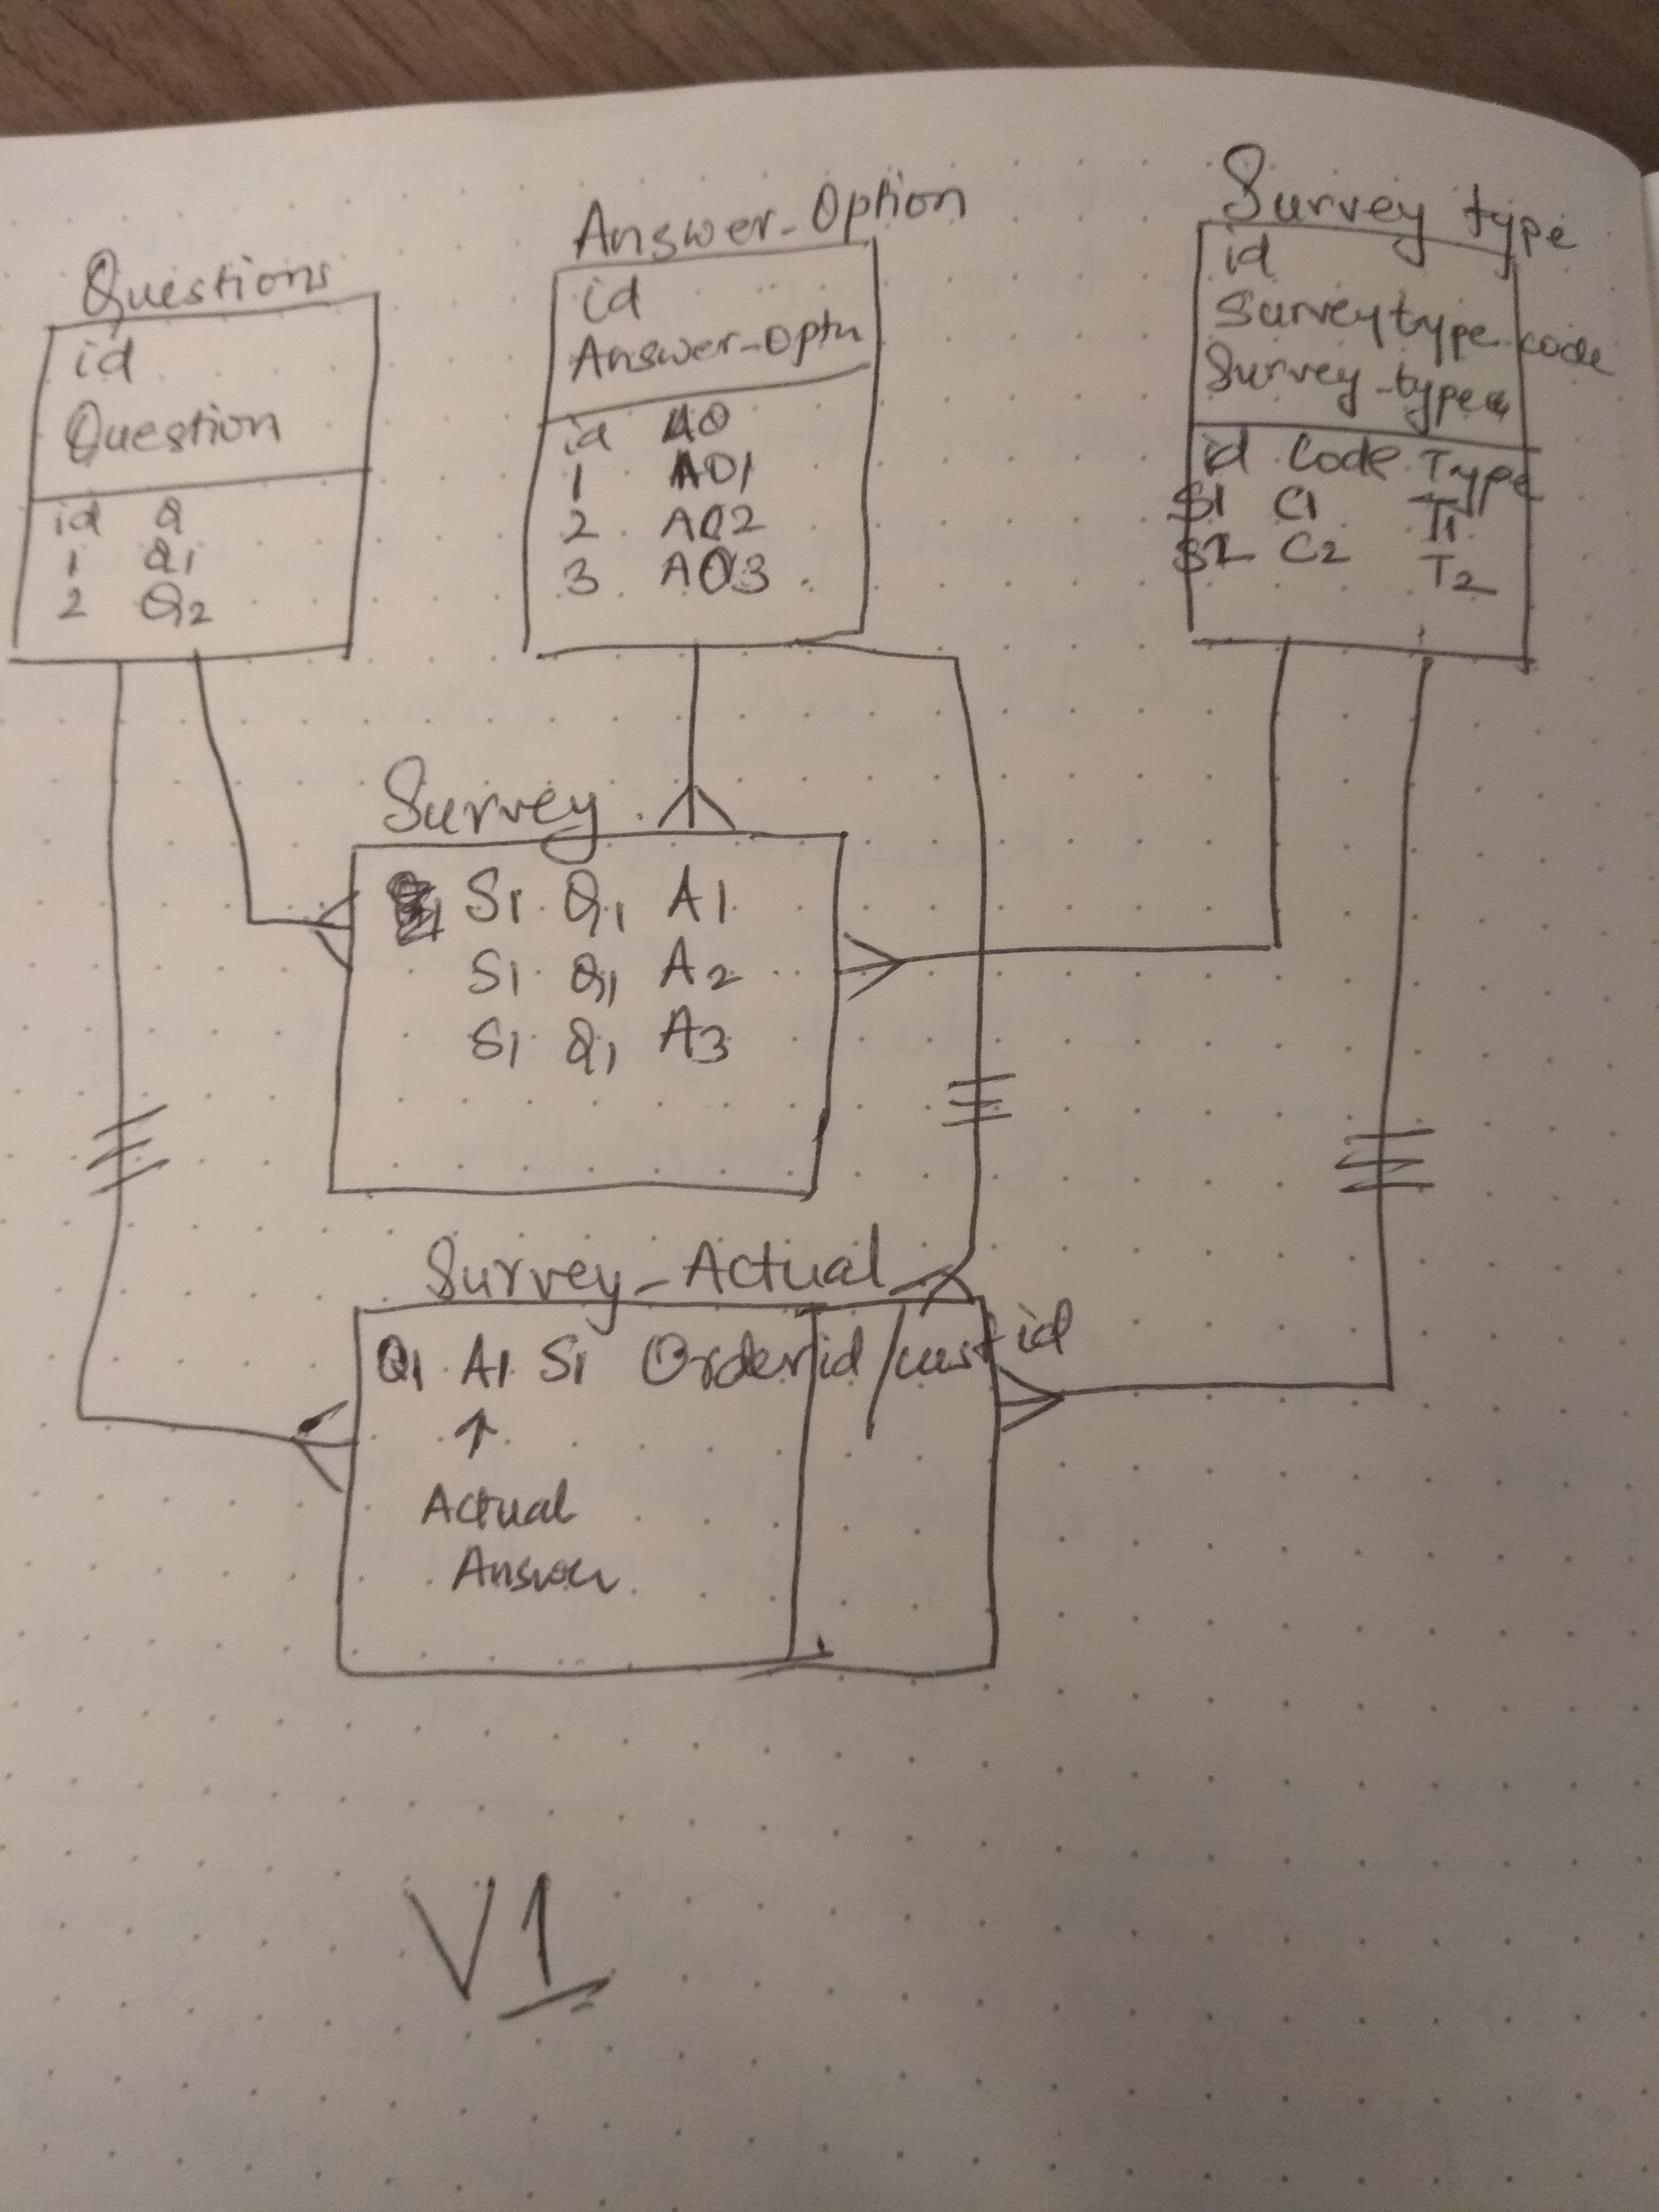 Questions
id
Question
id Q
1 Q1
2 Q2
Answer_Option
id
Answer_Optn
id AO
1 AO1
2 AO2
3 AO3
Survey type
id
Survey type code
Survey_type
id Code Type
S1 C1 T1
S2 C2 T2
Survey
S1 Q1 A1
S1 Q1 A2
S1 Q1 A3
Survey_Actual
Q1 A1 S1 Order id / cust id
↑
Actual
Answer
V1